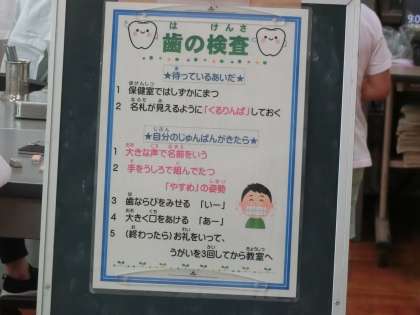 歯の検査
★待っているあいだ★
1 保健室ではしずかにまつ
2 名札が見えるように「くるりんぱ」しておく
★自分のじゅんばんがきたら★
1 大きな声で名前をいう
2 手をうしろで組んでたつ
「やすめ」の姿勢
3 歯ならびをみせる 「いー」
4 大きく口をあける 「あー」
5 (終わったら)お礼をいって、
うがいを3回してから教室へ